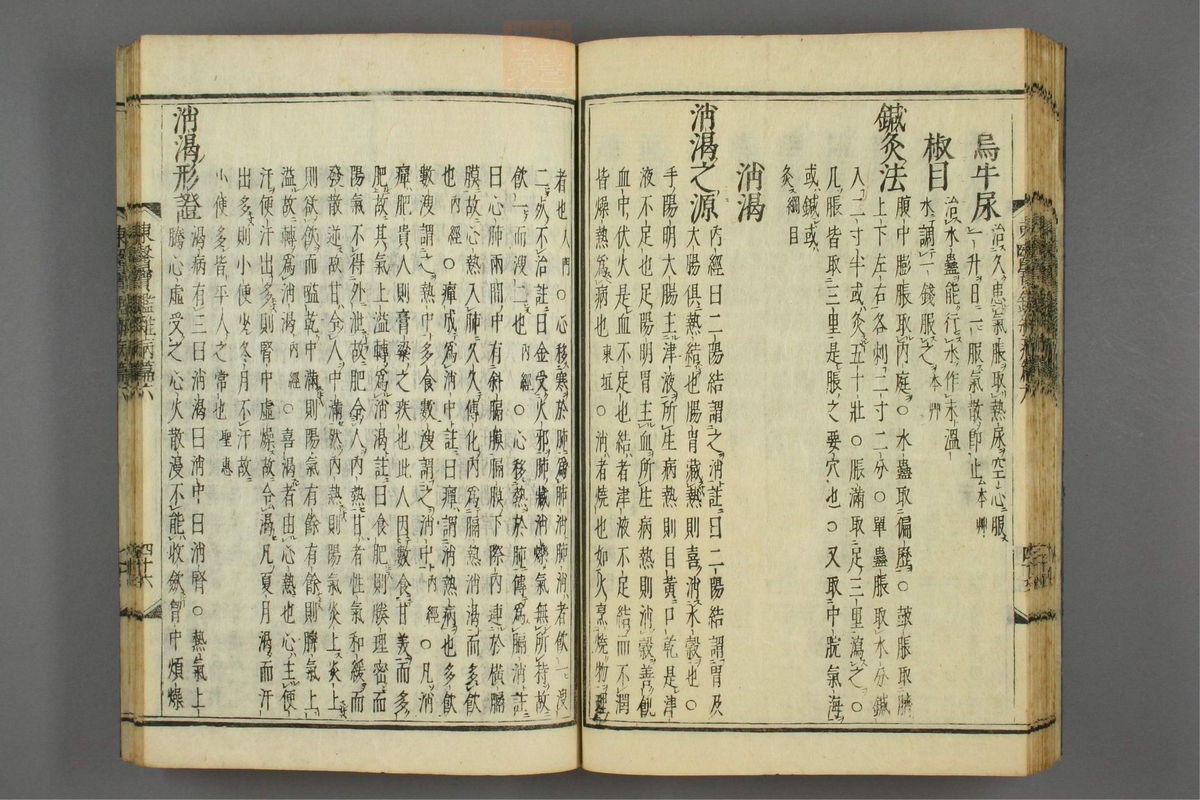 烏牛尿
治久患氣脹取熱尿空心服
一升日一服氣散即止 本艸
椒目
治水蠱能行水作末溫
水調一錢服之 本艸
鍼灸法
腹中膨脹取內庭○水蠱取偏歷○皷脹取臍
上下左右各刺二寸二分○單蠱脹取水分鍼
入二寸半或灸五十壯○脹滿取足三里瀉之○
凡脹皆取三里是脹之要穴也○又取中脘氣海
或鍼或
灸 綱目
消渴
消渴之源
內經曰二陽結謂之消註曰二陽結謂胃及
大腸俱熱結也腸胃藏熱則喜消水穀也○
手陽明大腸主津液所生病熱則目黃口乾是津
液不足也足陽明胃主血所生病熱則消穀善飢
血中伏火是血不足也結者津液不足結而不潤
皆燥熱爲病也 東垣 ○消者燒也如火烹燒物理
者也 入門 ○心移寒於肺爲肺消肺消者飲一溲
二死不治註曰金受火邪肺藏消爍氣無所持故
飲一而溲二也 內經 ○心移熱於肺傳爲膈消註
曰心肺兩間中有斜膈膜膈膜下際內連於橫膈
膜故心熱入肺久久傳化內爲膈熱消渴而多飲
也 內經 ○癉成爲消中註曰癉謂消熱病也多飲
數溲謂之熱中多食數溲謂之消中 內經 ○凡消
癉肥貴人則膏粱之疾也此人因數食甘美而多
肥故其氣上溢轉爲消渴註曰食肥則腠理密而
陽氣不得外泄故肥令人內熱甘者性氣和緩而
發散逆故甘令人中滿然內熱則陽氣炎上炎上
則欲飲而嗌乾中滿則陽氣有餘有餘則脾氣上
溢故轉爲消渴 內經 ○喜渴者由心熱也心主便
汗便汗出多則腎中虛燥故令渴凡夏月渴而汗
出多則小便少冬月不汗故
小便多皆平人之常也 聖惠
消渴形證
渴病有三曰消渴曰消中曰消腎○熱氣上
騰心虛受之心火散漫不能收斂胷中煩燥